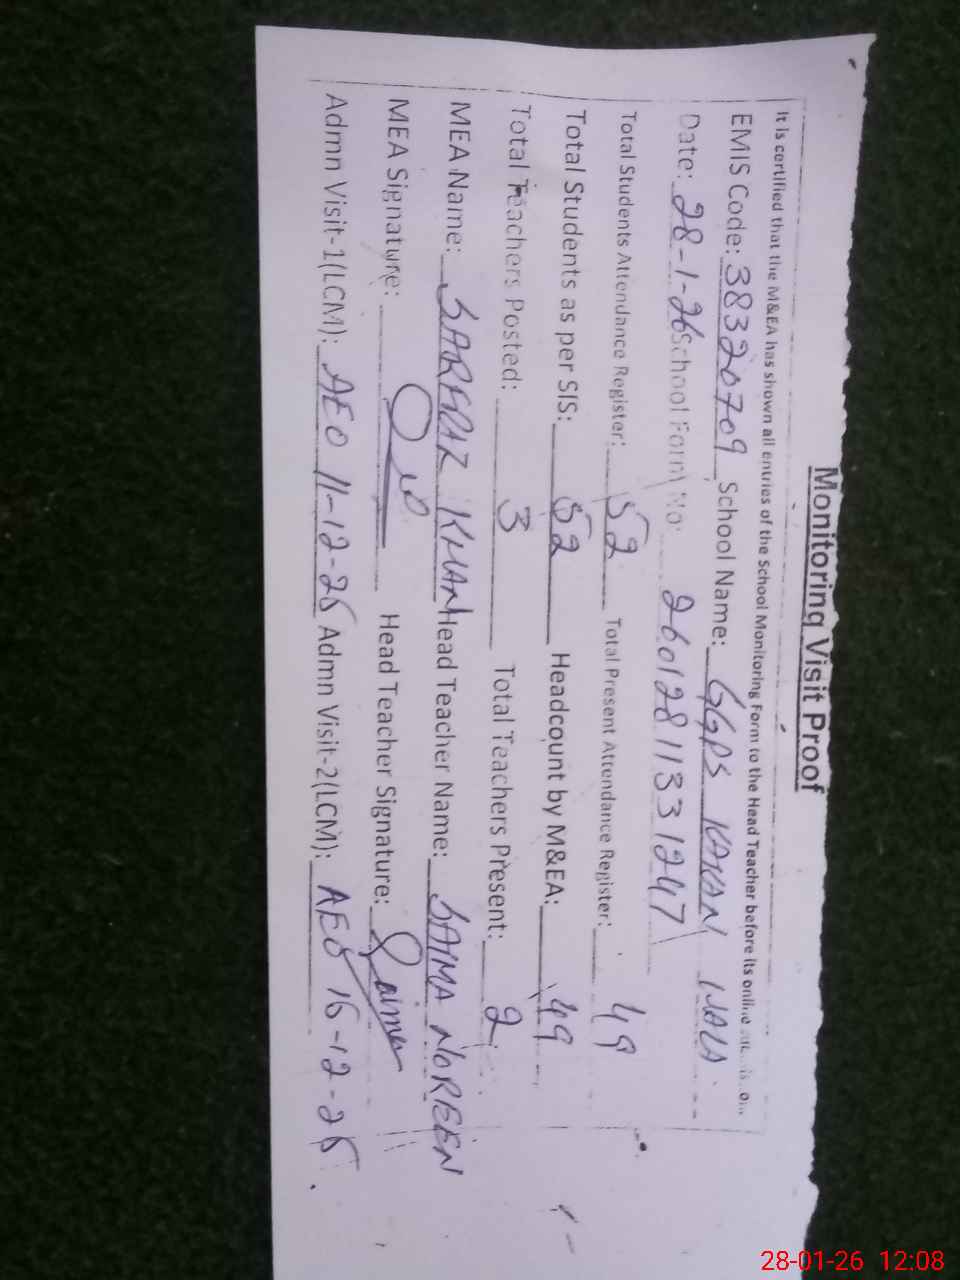 Monitoring Visit Proof
It is certified that the M&EA has shown all entries of the School Monitoring Form to the Head Teacher before its online
EMIS Code: 38320709 School Name: GGPS KAHAN WALA
Date: 28-1-26 School Form No: 260128113 31247
Total Students Attendance Register: 52 Total Present Attendance Register: 49
Total Students as per SIS: 52 Headcount by M&EA: 49
Total Teachers Posted: 3 Total Teachers Present: 2
MEA Name: SARFRAZ KHAN Head Teacher Name: SAIMA NOREEN
MEA Signature: Head Teacher Signature: Saima
Admn Visit-1(LCM): AEO 11-12-25 Admn Visit-2(LCM): AEO 16-12-25
28-01-26 12:08